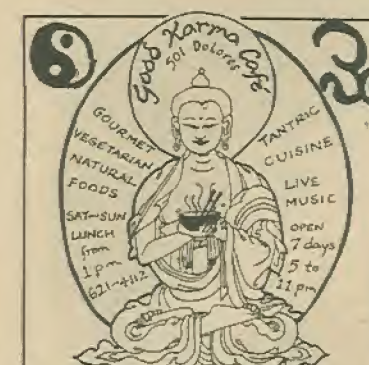 Good Karma Café
501 Dolores
GOURMET
VEGETARIAN
NATURAL
FOODS
SAT–SUN
LUNCH
from
1 pm
621-4112
TANTRIC
CUISINE
LIVE
MUSIC
OPEN
7 days
5 to
11 pm